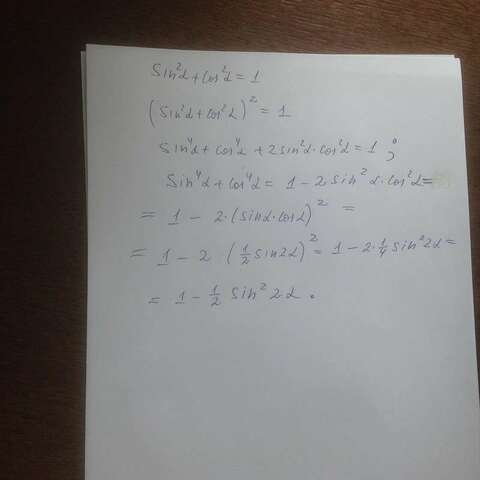 sin²α + cos²α = 1
(sin²α + cos²α)² = 1
sin⁴α + cos⁴α + 2sin²α·cos²α = 1 ;
sin⁴α + cos⁴α = 1 - 2 sin²α·cos²α =
= 1 - 2·(sinα·cosα)² =
= 1 - 2·(½ sin2α)² = 1 - 2·¼ sin²2α =
= 1 - ½ sin²2α.